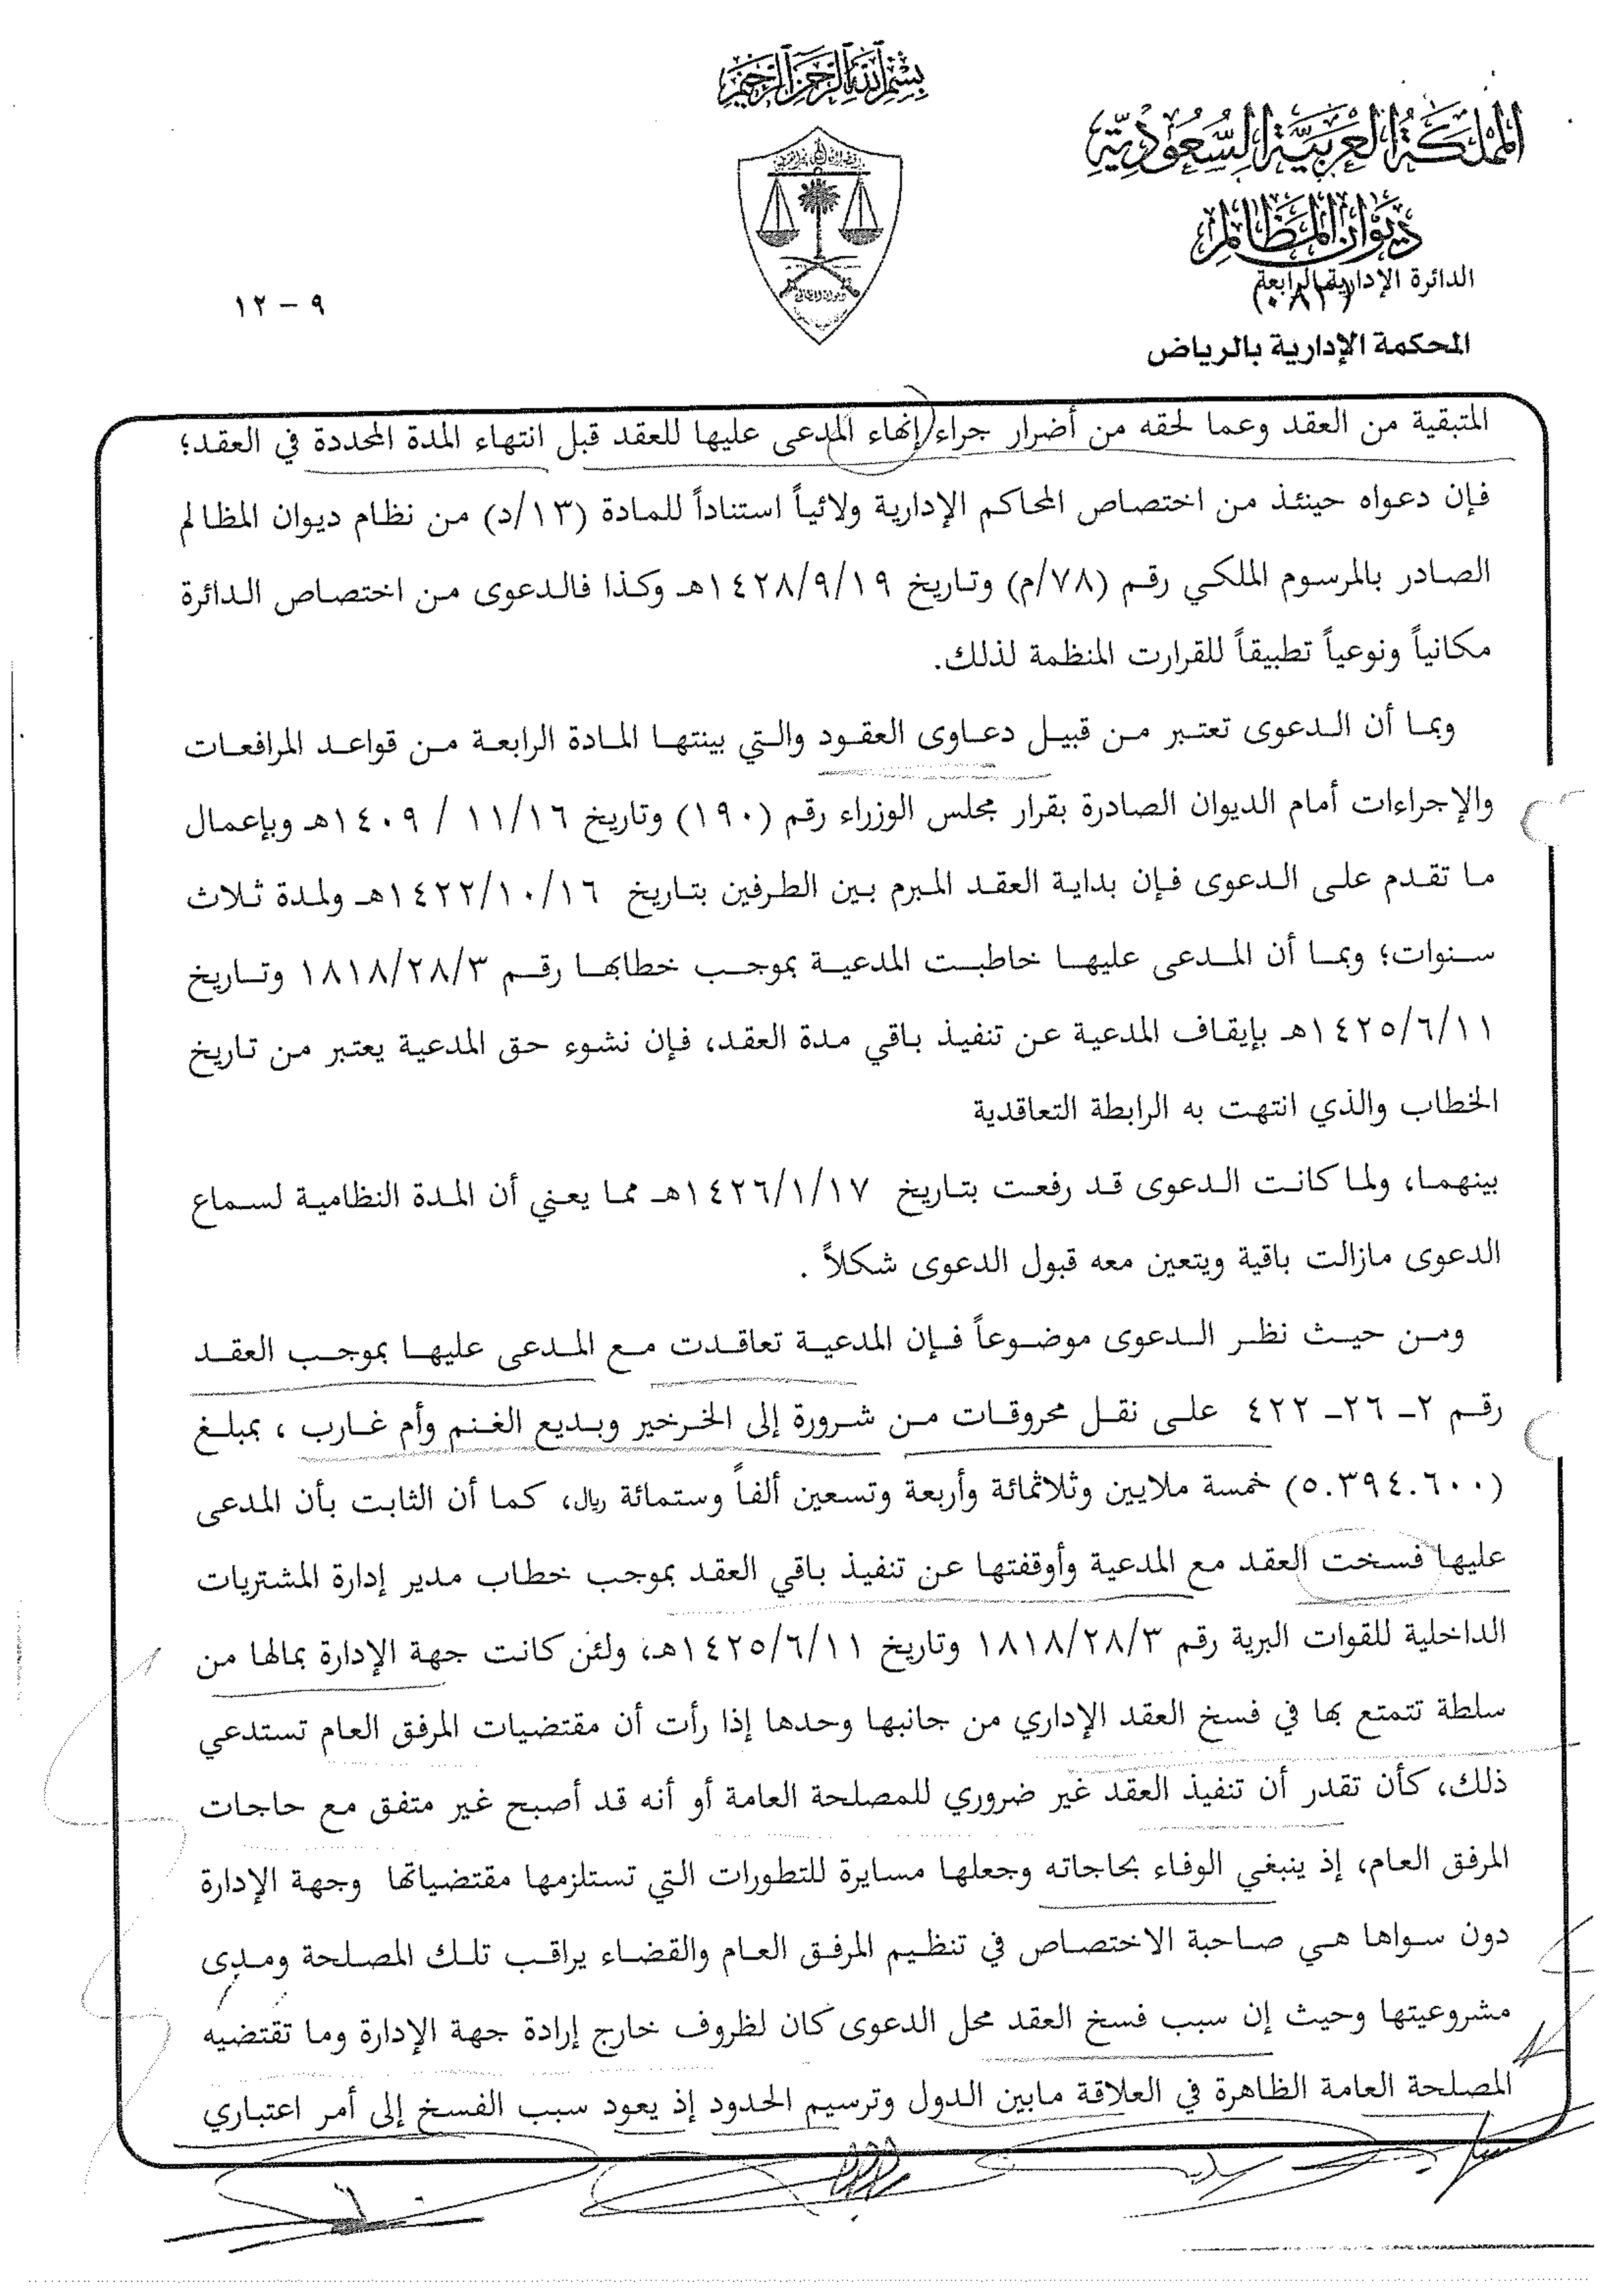 بسم الله الرحمن الرحيم
المملكة العربية السعودية
ديوان المظالم
الدائرة الإدارية الرابعة
(٠٨٢)
المحكمة الإدارية بالرياض
٩ – ١٢
المتبقية من العقد وعما لحقه من أضرار جراء إنهاء المدعى عليها للعقد قبل انتهاء المدة المحددة في العقد؛
فإن دعواه حينئذ من اختصاص المحاكم الإدارية ولائياً استناداً للمادة (١٣/د) من نظام ديوان المظالم
الصادر بالمرسوم الملكي رقم (٧٨/م) وتاريخ ١٤٢٨/٩/١٩هـ وكذا فالدعوى من اختصاص الدائرة
مكانياً ونوعياً تطبيقاً للقرارت المنظمة لذلك.
وبما أن الدعوى تعتبر من قبيل دعاوى العقود والتي بينتها المادة الرابعة من قواعد المرافعات
والإجراءات أمام الديوان الصادرة بقرار مجلس الوزراء رقم (١٩٠) وتاريخ ١١/١٦ / ١٤٠٩هـ وبإعمال
ما تقدم على الدعوى فإن بداية العقد المبرم بين الطرفين بتاريخ ١٤٢٢/١٠/١٦هـ ولمدة ثلاث
سنوات؛ وبما أن المدعى عليها خاطبت المدعية بموجب خطابها رقم ١٨١٨/٢٨/٣ وتاريخ
١٤٢٥/٦/١١هـ بإيقاف المدعية عن تنفيذ باقي مدة العقد، فإن نشوء حق المدعية يعتبر من تاريخ
الخطاب والذي انتهت به الرابطة التعاقدية
بينهما، ولما كانت الدعوى قد رفعت بتاريخ ١٤٢٦/١/١٧هـ مما يعني أن المدة النظامية لسماع
الدعوى مازالت باقية ويتعين معه قبول الدعوى شكلاً .
ومن حيث نظر الدعوى موضوعاً فإن المدعية تعاقدت مع المدعى عليها بموجب العقد
رقم ٢ـ ٢٦ـ ٤٢٢ على نقل محروقات من شرورة إلى الخرخير وبديع الغنم وأم غارب ، بمبلغ
(٥.٣٩٤.٦٠٠) خمسة ملايين وثلاثمائة وأربعة وتسعين ألفاً وستمائة ريال، كما أن الثابت بأن المدعى
عليها فسخت العقد مع المدعية وأوقفتها عن تنفيذ باقي العقد بموجب خطاب مدير إدارة المشتريات
الداخلية للقوات البرية رقم ١٨١٨/٢٨/٣ وتاريخ ١٤٢٥/٦/١١هـ، ولئن كانت جهة الإدارة بمالها من
سلطة تتمتع بها في فسخ العقد الإداري من جانبها وحدها إذا رأت أن مقتضيات المرفق العام تستدعي
ذلك، كأن تقدر أن تنفيذ العقد غير ضروري للمصلحة العامة أو أنه قد أصبح غير متفق مع حاجات
المرفق العام، إذ ينبغي الوفاء بحاجاته وجعلها مسايرة للتطورات التي تستلزمها مقتضياتها وجهة الإدارة
دون سواها هي صاحبة الاختصاص في تنظيم المرفق العام والقضاء يراقب تلك المصلحة ومدى
مشروعيتها وحيث إن سبب فسخ العقد محل الدعوى كان لظروف خارج إرادة جهة الإدارة وما تقتضيه
المصلحة العامة الظاهرة في العلاقة مابين الدول وترسيم الحدود إذ يعود سبب الفسخ إلى أمر اعتباري